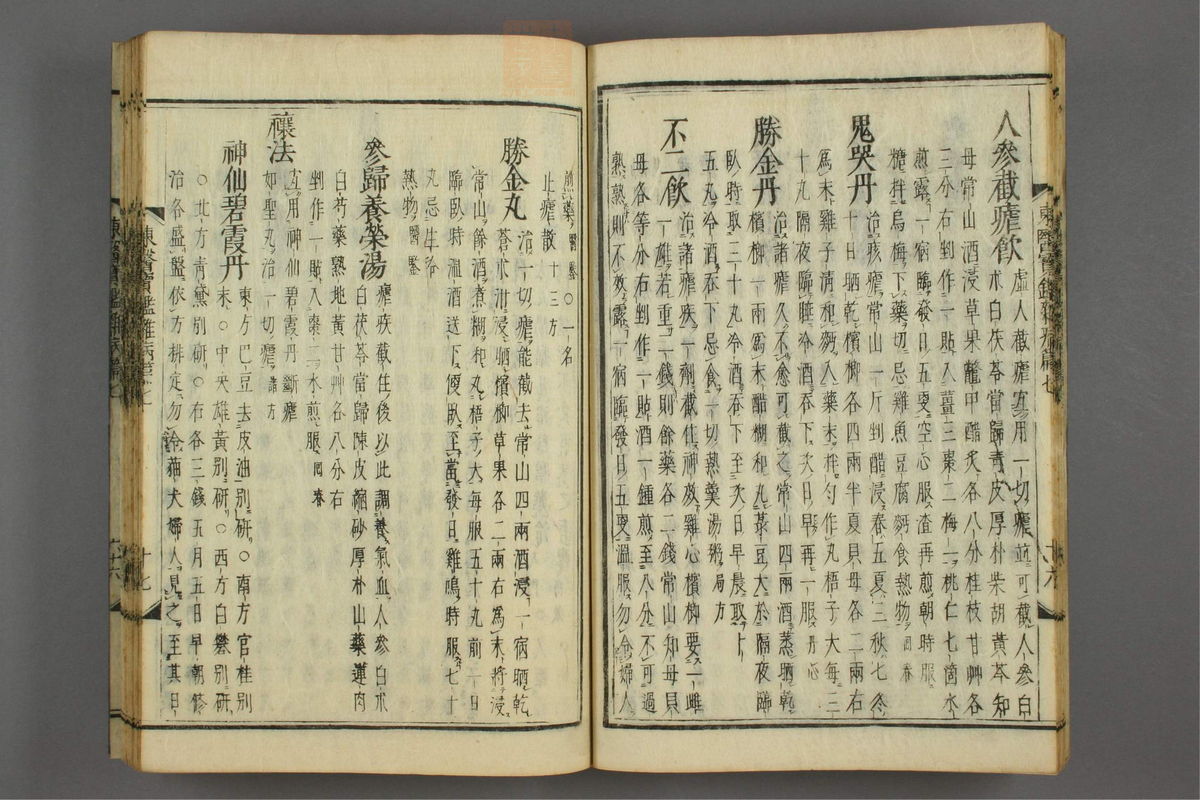 人參截瘧飲 虛人截瘧宜用一切瘧並可截人參白
朮白茯苓當歸青皮厚朴柴胡黃芩知
母常山酒浸草果鼈甲醋炙各八分桂枝甘艸各
三分右剉作一貼入薑三棗二梅一桃仁七箇水
煎露一宿臨發日五更空心服渣再煎朝時服
糖拌烏梅下藥切忌雞魚豆腐麪食熱物 回春
鬼哭丹 治痎瘧常山一斤剉醋浸春五夏三秋七冬
十日晒乾檳榔各四兩半夏貝母各二兩右
爲末雞子淸和麪入藥末拌勻作丸梧子大每三
十丸隔夜冷酒呑下次日早再一服 丹心
勝金丹 治諸瘧久不愈可截之常山四兩酒蒸晒乾
檳榔一兩爲末醋糊和丸菉豆大於隔夜臨
臥時取三十丸冷酒呑下至次日早晨取十
五丸冷酒呑下忌食一切熱羹湯粥 局方
不二飮 治諸瘧疾一劑截住神效雞心檳榔要一雌
一雄若重二錢則餘藥各二錢常山知母貝
母各等分右剉作一貼酒一鍾煎至八分不可過
熟熟則不效露一宿臨發日五更溫服勿令婦人
煎藥 醫鑒 ○一名
止瘧散 十三方
勝金丸 治一切瘧能截去常山四兩酒浸一宿晒乾
蒼朮泔浸晒檳榔草果各二兩右爲末將浸
常山餘酒煮糊和丸梧子大每服五十丸前一日
臨臥時溫酒送下便臥至當發日雞鳴時服七十
丸忌生冷
熱物 醫鑒
參歸養榮湯 瘧疾截住後以此調養氣血人參白朮
白茯苓當歸陳皮縮砂厚朴山藥蓮肉
白芍藥熟地黃甘艸各八分右
剉作一貼入棗二水煎服 回春
禳法 宜用神仙碧霞丹斷瘧
如聖丸治一切瘧 諸方
神仙碧霞丹 東方巴豆去皮油別硏○南方官桂別
末○中央雄黃別硏○西方白礬別硏
○北方靑黛別硏○右各三錢五月五日早朝修
治各盛盤依方排定勿令猫犬婦人見之至其日